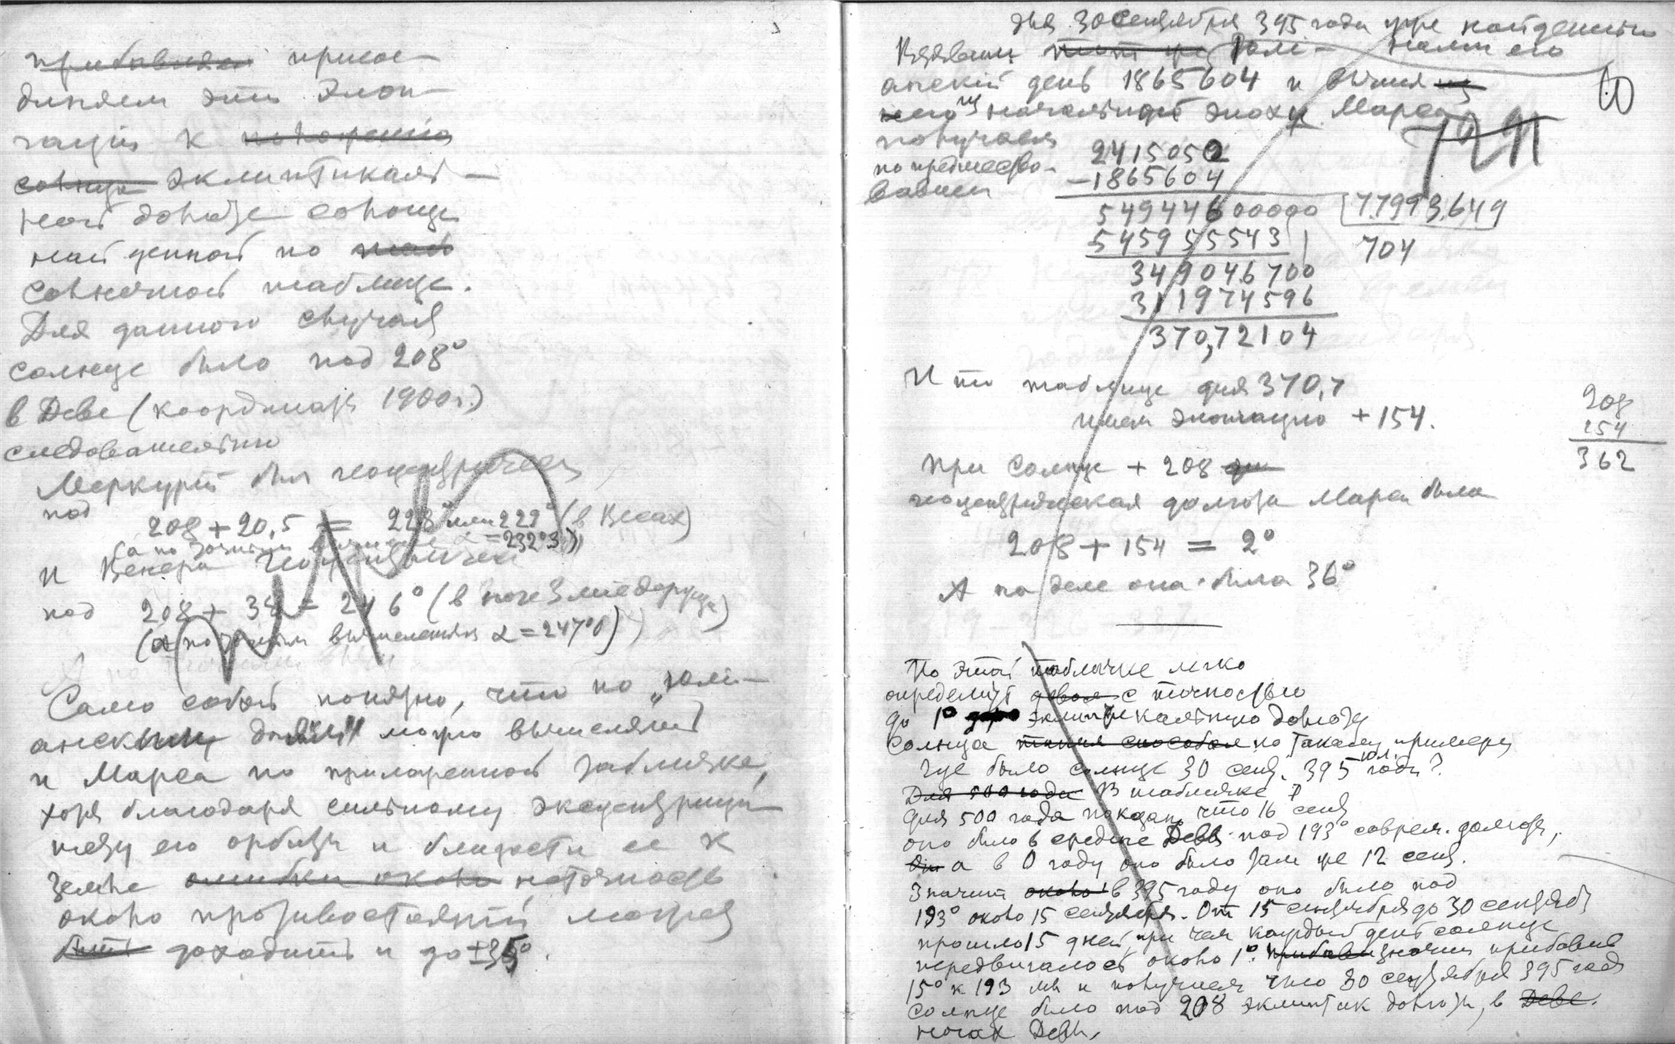 прибавляя присое-
диняем эти Элон-
гации к положению
солнца эклиптикаль-
ной долготе солнца
найденной по табл
солнечной таблице.
Для данного случая
солнце было под 208°
в Деве (координаты 1900 г.)
следовательно
Меркурий был геоцентрически
под
208 + 20,5 = 228° или 229° (в Весах)
(а по точным вычислениям α = 232°3)
И Венера геоцентрически
под 208 + 38 = 246° (в ноге Змиедержца)
(а по точным вычислениям α = 247°0)
Само собой понятно, что по "юли-
анским дням" можно вычислять
и Марса по приложенной табличке,
хотя благодаря сильному эксцентриси-
тету его орбиты и близости ее к
Земле ошибки около неточность
около противостояний может
быть доходить и до ±35°.
Для 30 сентября 395 года уже найденный
Взявши тот же Юли- нами его
анский день 1865604 и вычтя из
него начальную эпоху Марса
получаем
по предшество-
вавшей
10
7291
2415052
-1865604
54944600000 77993,649
545955543 704
349046700
311974596
370,72104
И по таблице для 370,7
имеем элонгацию + 154.
208
154
362
При Солнце + 208
геоцентрическая долгота Марса была
208 + 154 = 2°
А на деле она была 36°
По этой табличке легко
определить с точностью
до 1° эклиптикальную долготу
Солнца таким способом по такому примеру
Где было солнце 30 сент. 395 юл. года?
Для 500 года В табличке
для 500 года показано, что 16 сент
оно было в средине Девы под 193° соврем. долготы,
а в 0 году оно было там же 12 сент.
Значит около в 395 году оно было под
193° около 15 сентября. От 15 сентября до 30 сентября
прошло 15 дней, при чем каждый день солнце
передвигалось около 1°. Прибави Значит прибавив
15° к 193 мы и получаем что 30 сентября 395 года
солнце было под 208 эклиптик долготы, в Деве.
ногах Девы,